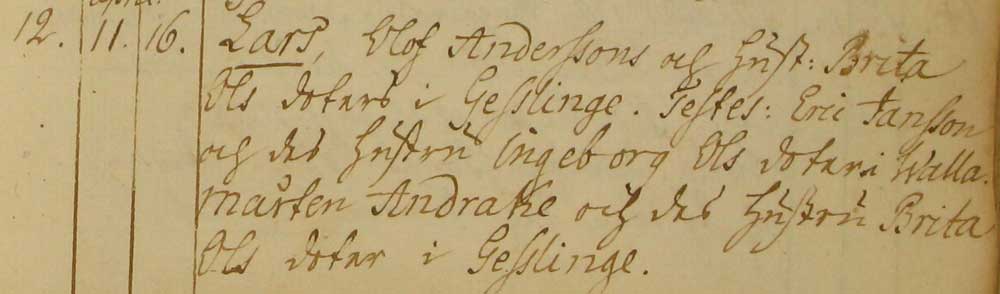 12. 11. 16. Lars, Olof Anderssons och Hust: Brita
Ols doters i Gesslinge. Testes: Eric Jansson
och des Hustru Ingeborg Ols doter i Walla.
Mårten Andrake och des Hustru Brita
Ols doter i Gesslinge.